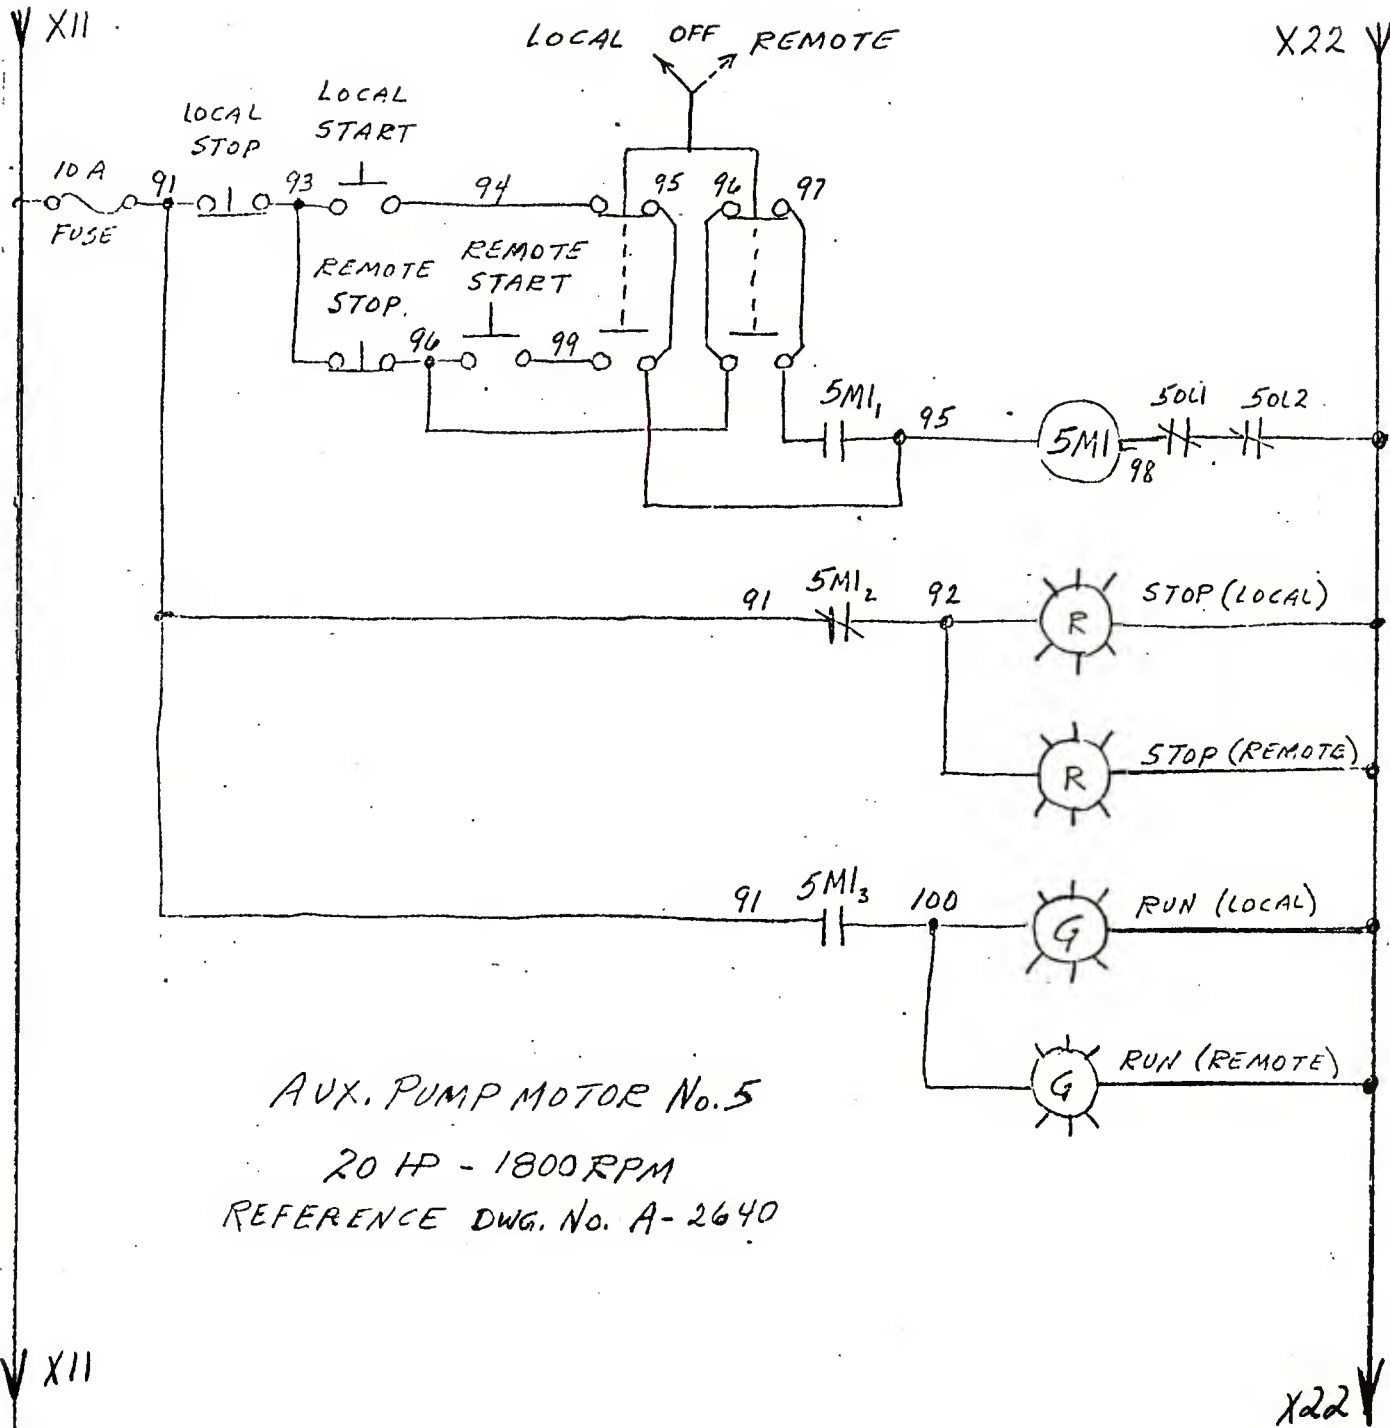 X11
LOCAL OFF REMOTE
X22
LOCAL
STOP
LOCAL
START
10 A
FUSE
91
93
94
95
96
97
REMOTE
STOP.
REMOTE
START
96
99
5M1₁
95
5M1
98
5OL1
5OL2
91
5M1₂
92
R
STOP (LOCAL)
R
STOP (REMOTE)
91
5M1₃
100
G
RUN (LOCAL)
G
RUN (REMOTE)
AUX. PUMP MOTOR No. 5
20 HP - 1800 RPM
REFERENCE DWG. No. A-2640
X11
X22